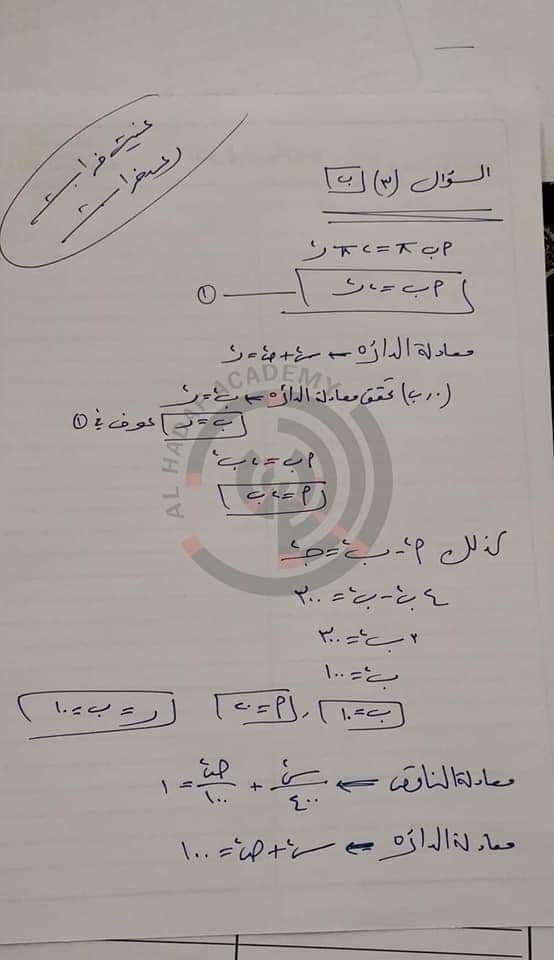 السؤال (٣) ب
٢ب π = ٢ π ر٢
٢ب = ٢ر٢ — ①
معادلة الدائرة ← س٢ + ص٢ = ر٢
(٠، ب) تحقق معادلة الدائرة ← ب٢ = ر٢
ب = ر عوض في ①
٢ب = ٢ب٢
٢ = ٢ب
كذلك ٢٢ - ب٢ = جـ٢
٤ب٢ - ب٢ = ٣٠٠
٣ب٢ = ٣٠٠
ب٢ = ١٠٠
ب = ١٠، ٢ = ٢٠ ر = ب = ١٠
معادلة الناقص ← س٢/٤٠٠ + ص٢/١٠٠ = ١
معادلة الدائرة ← س٢ + ص٢ = ١٠٠
AL HADAF ACADEMY